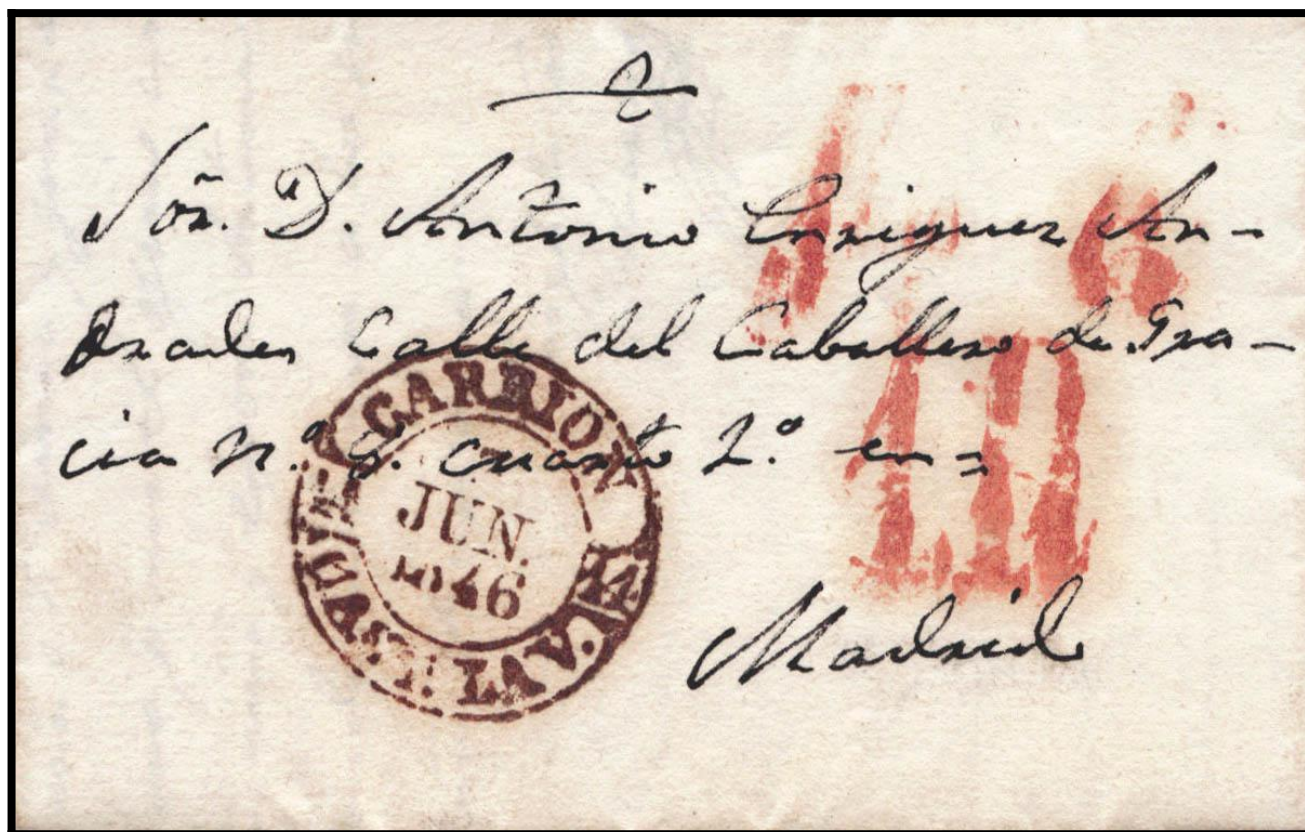 Sor. D. Antonio Enriquez An-
drades Calle del Caballero de Gra-
cia n.º 8. cuarto 2.º en=
Madrid
CARRION
JUN.
1846